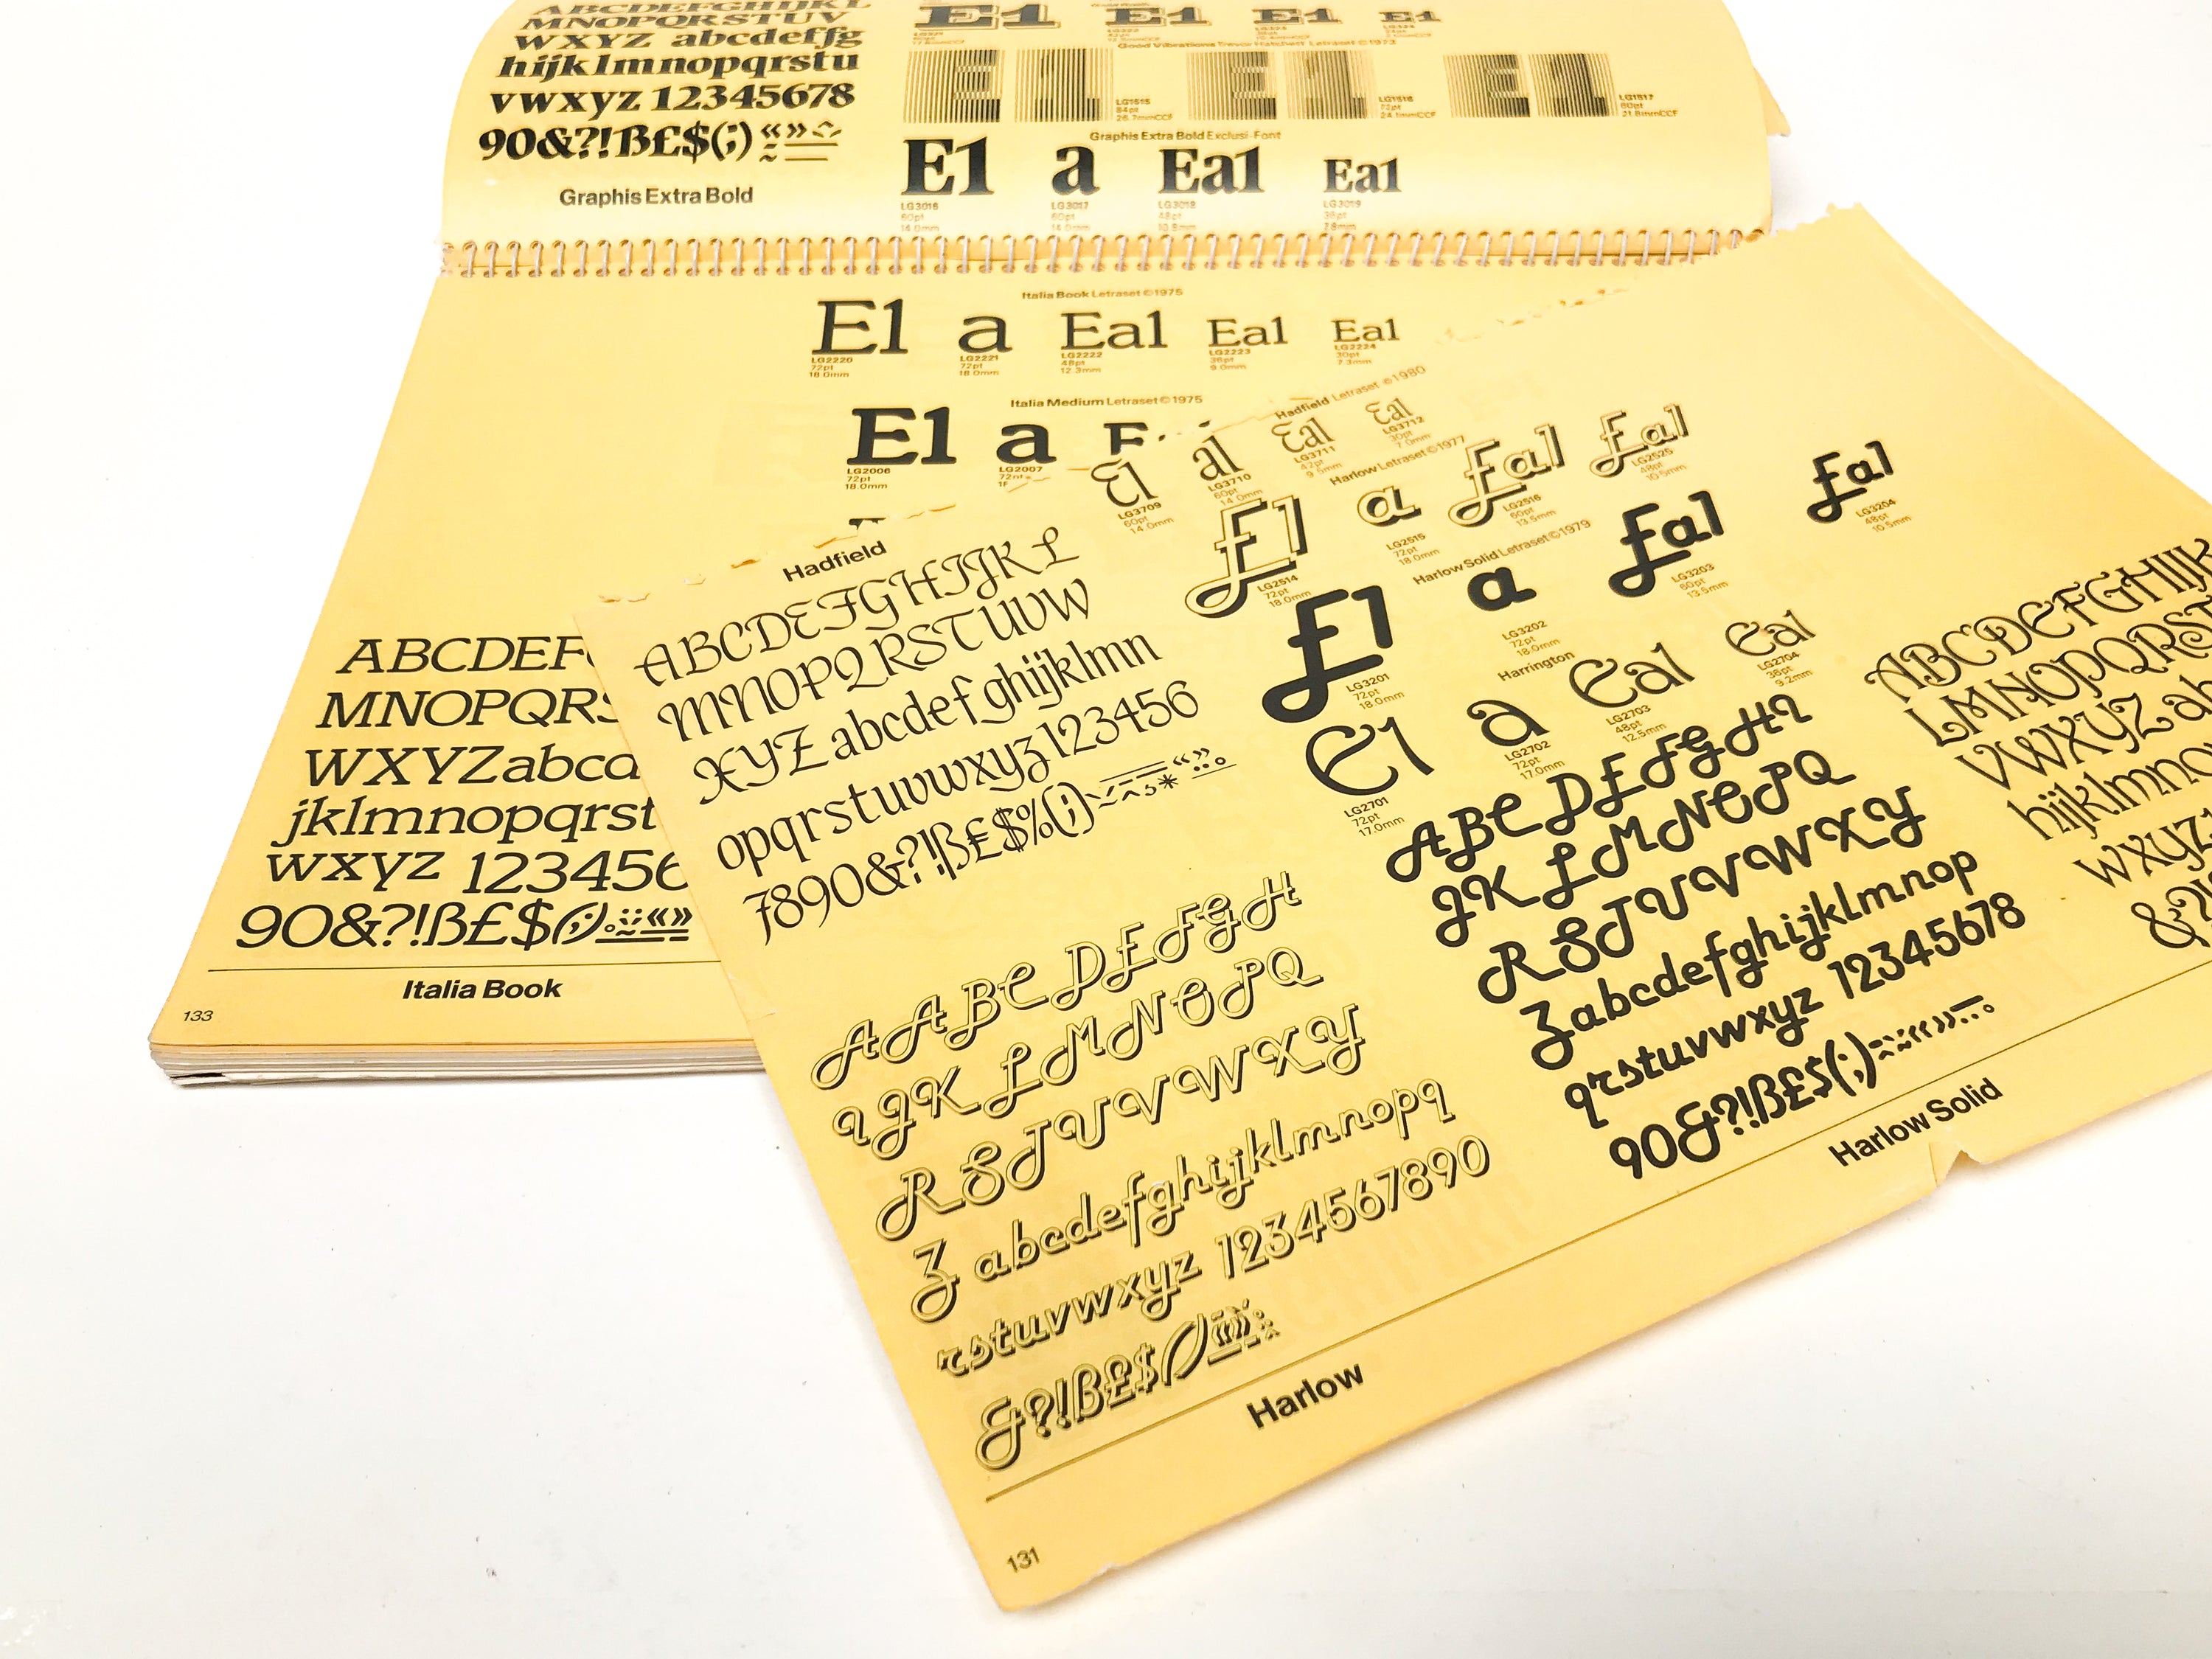 ABCDEFGHIJKL
MNOPQRSTUV
WXYZ abcdeffg
hijklmnopqrstu
vwxyz 12345678
90&?!ß£$(;) «»
Graphis Extra Bold
E1 E1 E1 E1
Good Vibrations Trevor Hatchett Letraset ©1973
E 1 E 1 E 1
LG1515 LG1516 LG1517
84pt 72pt 60pt
26.7mmCCF 24.1mmCCF 21.8mmCCF
Graphis Extra Bold Exclusi-Font
E1 a Ea1 Ea1
LG3016 LG3017 LG3018 LG3019
60pt 60pt 48pt 36pt
14.0mm 14.0mm 10.9mm 7.8mm
Italia Book Letraset ©1975
E1 a Ea1 Ea1 Ea1
LG2220 LG2221 LG2222 LG2223 LG2224
72pt 72pt 48pt 36pt 30pt
18.0mm 18.0mm 12.3mm 9.0mm 7.3mm
Italia Medium Letraset ©1975
E1 a
LG2006 LG2007
72pt 72pt
18.0mm
ABCDEF
MNOPQRS
WXYZabcd
jklmnopqrst
wxyz 123456
90&?!ß£$(;) «»
Italia Book
133
Hadfield Letraset ©1980
E1 a1 Ea1 Ea1
LG3709 LG3710 LG3711 LG3712
60pt 60pt 42pt 30pt
14.0mm 14.0mm 9.5mm 7.0mm
Harlow Letraset ©1977
E1 a Ea1 Ea1
LG2514 LG2515 LG2516 LG2525
72pt 72pt 60pt 48pt
18.0mm 18.0mm 13.5mm 10.5mm
Harlow Solid Letraset ©1979
E1 a Ea1 Ea1
LG3201 LG3202 LG3203 LG3204
72pt 72pt 60pt 48pt
18.0mm 18.0mm 13.5mm 10.5mm
Harrington
E1 a Ea1 Ea1
LG2701 LG2702 LG2703 LG2704
72pt 72pt 48pt 36pt
17.0mm 17.0mm 12.5mm 9.2mm
Hadfield
ABCDEFGHIJKL
MNOPQRSTUVW
XYZ abcdefghijklmn
opqrstuvwxyz123456
7890&?!ß£$%(;) * «»
AABCDEFGH
IJKLMNOPQ
RSTUVWXY
Z abcdefghijklmnopq
rstuvwxyz 1234567890
&?!ß£$()
Harlow
ABCDEFGHI
JKLMNOPQ
RSTUVWXY
Zabcdefghijklmnop
qrstuvwxyz 12345678
90&?!ß£$(;) «»
Harlow Solid
ABCDEFGHIJK
LMNOPQRST
VWXYZ ab
hijklmno
wxyz
&?!
131